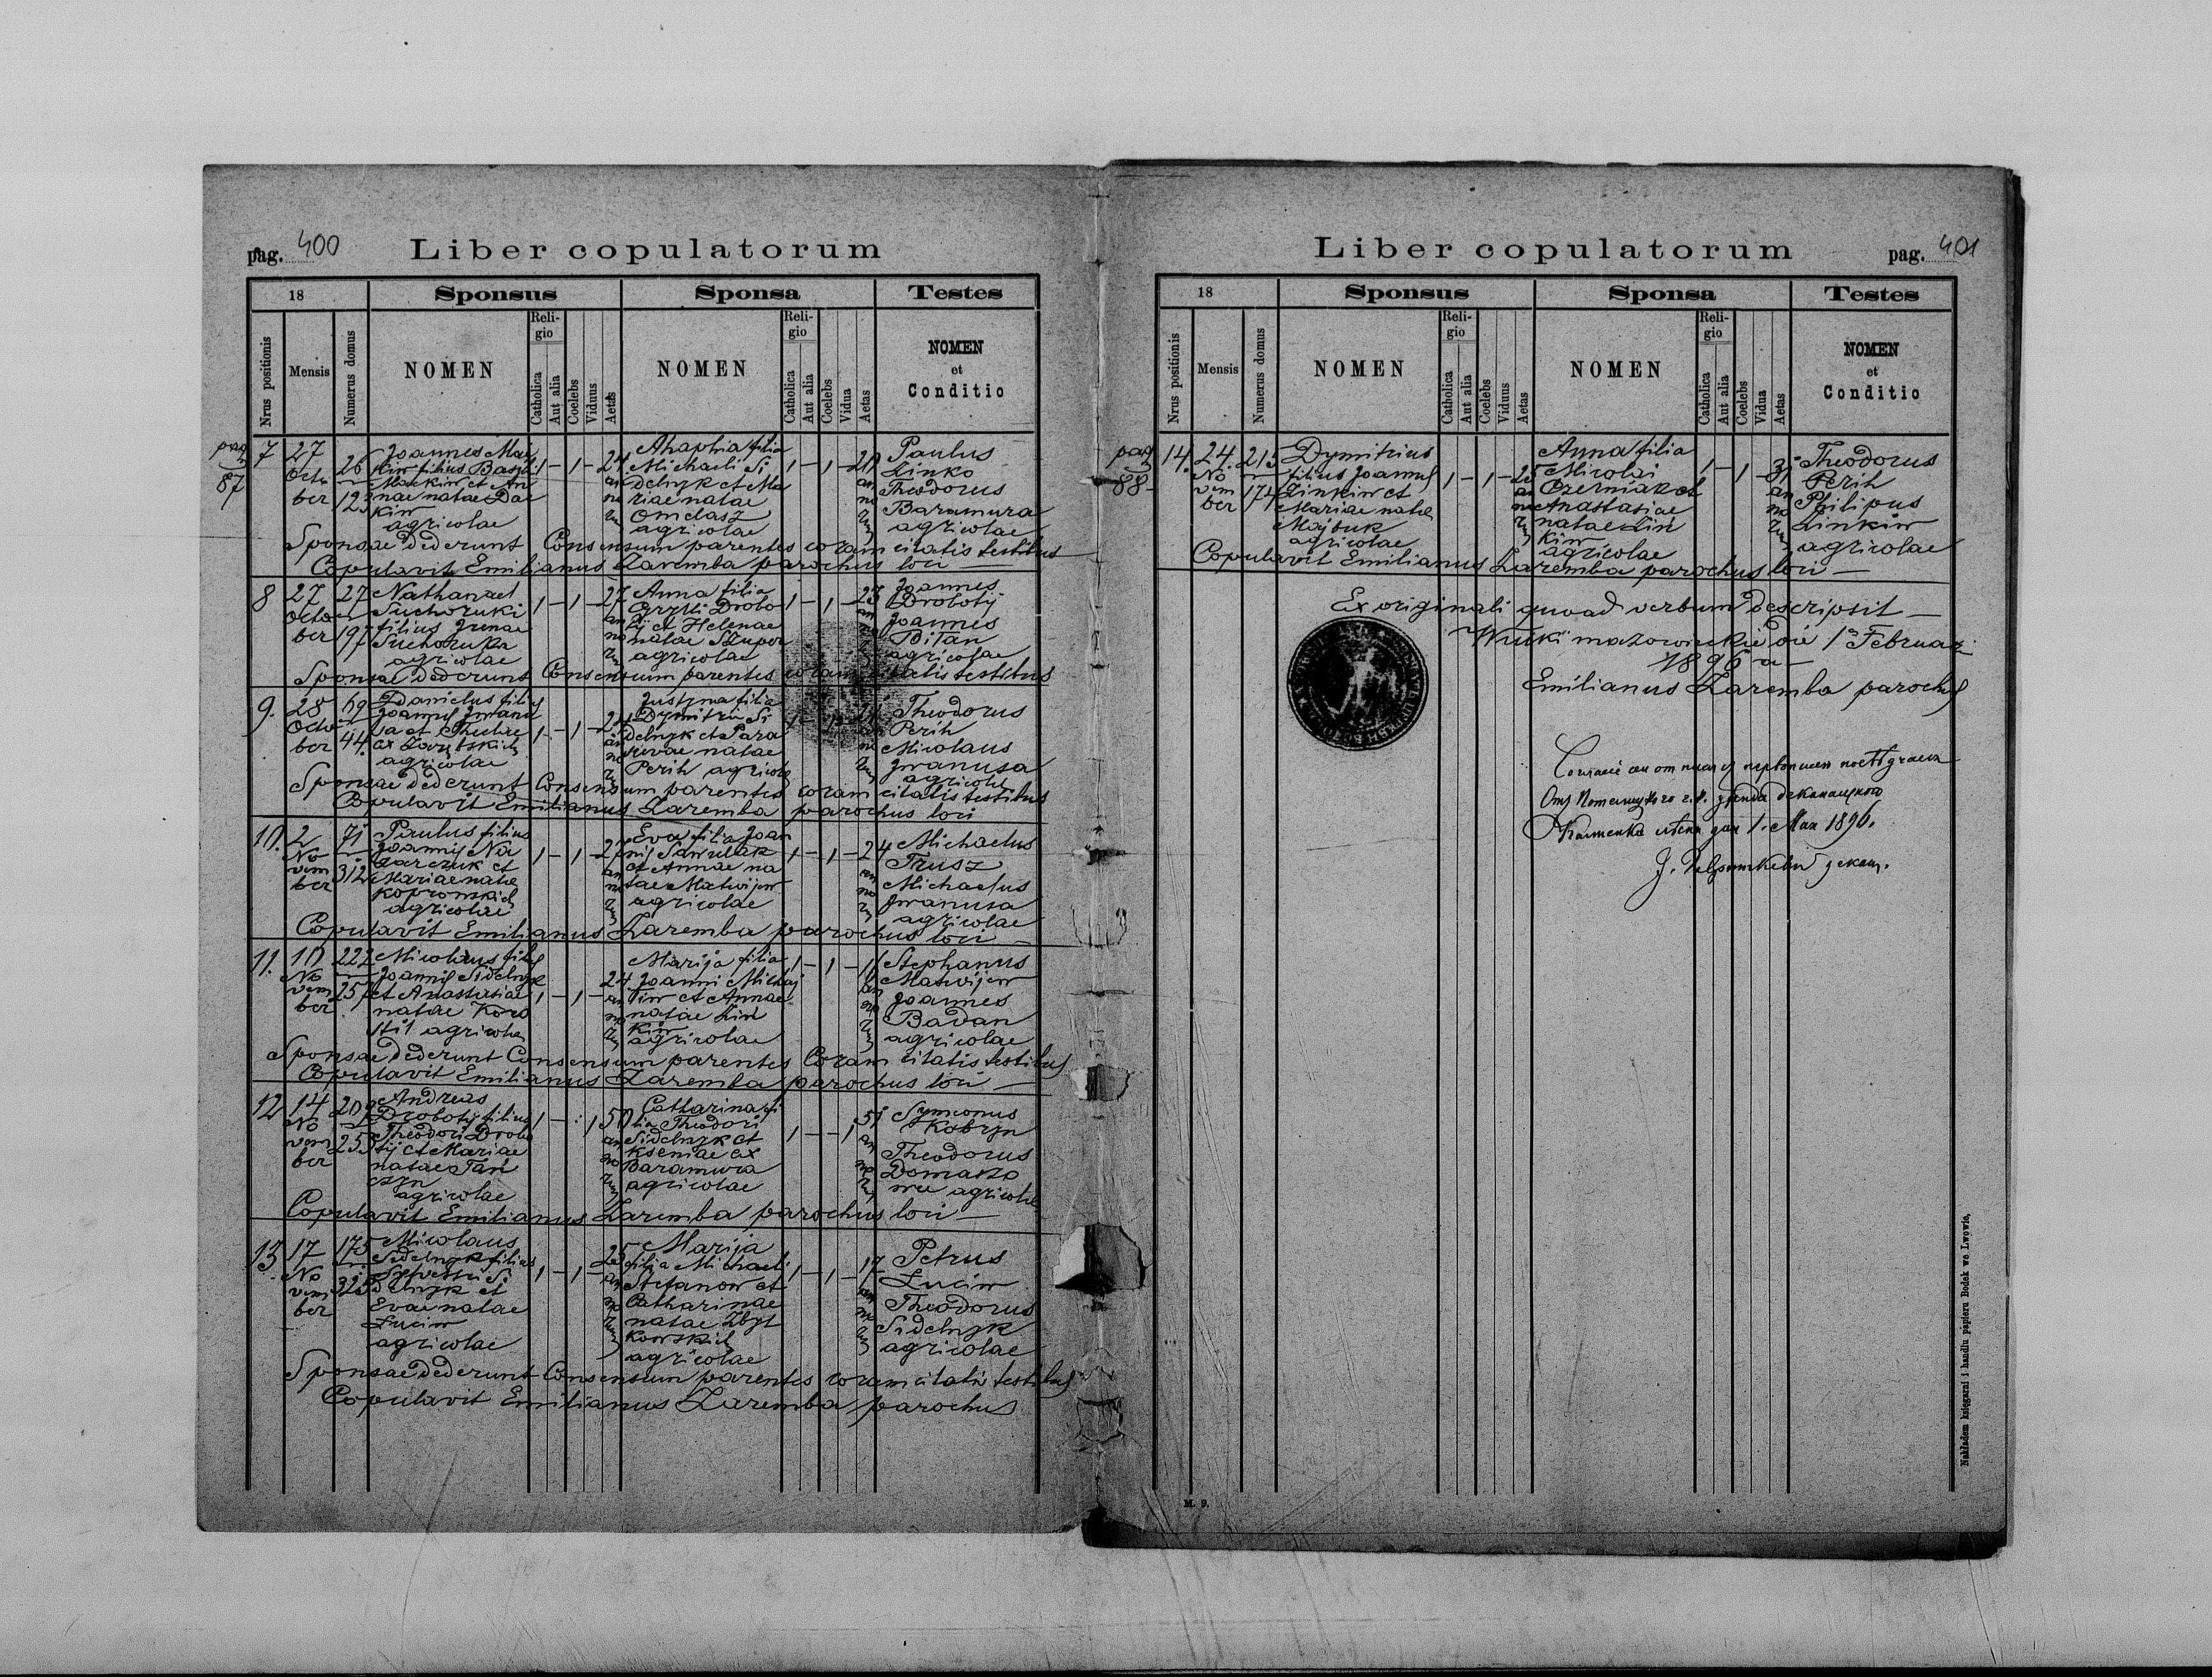 pag. 400
Liber copulatorum
18
Sponsus
Sponsa
Testes
Nrus positionis
Mensis
Numerus domus
NOMEN
Religio
Catholica
Aut alia
Coelebs
Viduus
Aetas
NOMEN
Religio
Catholica
Aut alia
Coelebs
Vidua
Aetas
NOMEN
et
Conditio
pag
87
7
27
Octo
ber
26
123
Joannes Mac
kiw filius Basilii
Mackiw et An
nae natae Dac
kiw
agricolae
1 - 1 - 24
Ahaphia filia
Michaeli Si
delnyk et Ma
riae natae
Omelasz
agricolae
1 - 1 - 20
Paulus
Zinko
Theodorus
Baramura
agricolae
Sponsae dederunt Consensum parentes coram citatis testibus
Copulavit Emilianus Zaremba parochus loci
8
27
Octo
ber
27
197
Nathanael
Suchoruki
filius Irenae
Suchoruka
agricolae
1 - 1 - 27
Anna filia
Drobo
tij et Helenae
natae
agricolae
1 - 1 - 23
Joannes
Drobotij
Joannes
Bilan
agricolae
Sponsae dederunt Consensum parentes coram citatis testibus
9.
28
Octo
ber
69
44
Danielus filius
Joannis Iwanu
sa et Theclae
ex
agricolae
1 - 1 - 24
Justyna filia
Dymitrii Si
delnyk et Para
scevae natae
Perih agricolae
Theodorus
Perih
Nicolaus
Iwanusa
agricolae
Sponsae dederunt Consensum parentes coram citatis testibus
Copulavit Emilianus Zaremba parochus loci
10.
2
No
vem
ber
71
312
Paulus filius
Joannis Na
zarczuk et
Mariae natae
Kopronskich
agricolae
1 - 1 - 27
Eva filia Joan
nis Sawulak
et Annae na
tae Matwijew
agricolae
1 - 1 - 24
Michaelus
Trusz
Michaelus
Iwanusa
agricolae
Copulavit Emilianus Zaremba parochus loci
11.
10
No
vem
ber
222
257
Nicolaus filius
Joannis Sidelnyk
et Anastasiae
natae Koro
stil agricolae
1 - 1 - 24
Marija filia
Joanni Michaj
liw et Annae
natae Zin
kiw
agricolae
1 - 1 - 16
Stephanus
Matwijew
Joannes
Badan
agricolae
Sponsae dederunt Consensum parentes Coram citatis testibus
Copulavit Emilianus Zaremba parochus loci
12
14
No
vem
ber
209
253
Andreas
Drobotij filius
Theodori Drobo
tij et Mariae
natae Pan
czyn
agricolae
1 - - 1 50
Catharina fi
lia Theodori
Sidelnyk et
Kseniae ex
Baramura
agricolae
1 - - 1 51
Symeonus
Kobryn
Theodorus
Domaszo
wec agricolae
Copulavit Emilianus Zaremba parochus loci
13
17
No
vem
ber
175
325
Nicolaus
Sidelnyk filius
Sylvestri Si
delnyk et
Evae natae
Luciw
agricolae
1 - 1 - 25
Marija
filia Michaeli
Stefanow et
Catharinae
natae Zbyt
kowskich
agricolae
1 - 1 - 17
Petrus
Luciw
Theodorus
Sidelnyk
agricolae
Sponsae dederunt Consensum parentes coram citatis testibus
Copulavit Emilianus Zaremba parochus
Liber copulatorum
pag. 401
18
Sponsus
Sponsa
Testes
Nrus positionis
Mensis
Numerus domus
NOMEN
Religio
Catholica
Aut alia
Coelebs
Viduus
Aetas
NOMEN
Religio
Catholica
Aut alia
Coelebs
Vidua
Aetas
NOMEN
et
Conditio
pag
88
14.
24
No
vem
ber
215
174
Dymitrius
filius Joannis
Zinkiw et
Mariae natae
Majbuk
agricolae
1 - 1 - 25
Anna filia
Nicolai
Czerniak et
Anastasiae
natae Zin
kiw
agricolae
1 - 1 - 31
Theodorus
Perih
Philipus
Zinkiw
agricolae
Copulavit Emilianus Zaremba parochus loci
Ex originali quoad verbum descripsit
Wulki mazowieckie die 1 Februar
1896
Emilianus Zaremba parochus
1. Мая 1896.
M. 9.
Nakładem księgarni i handlu papieru Bodek we Lwowie,